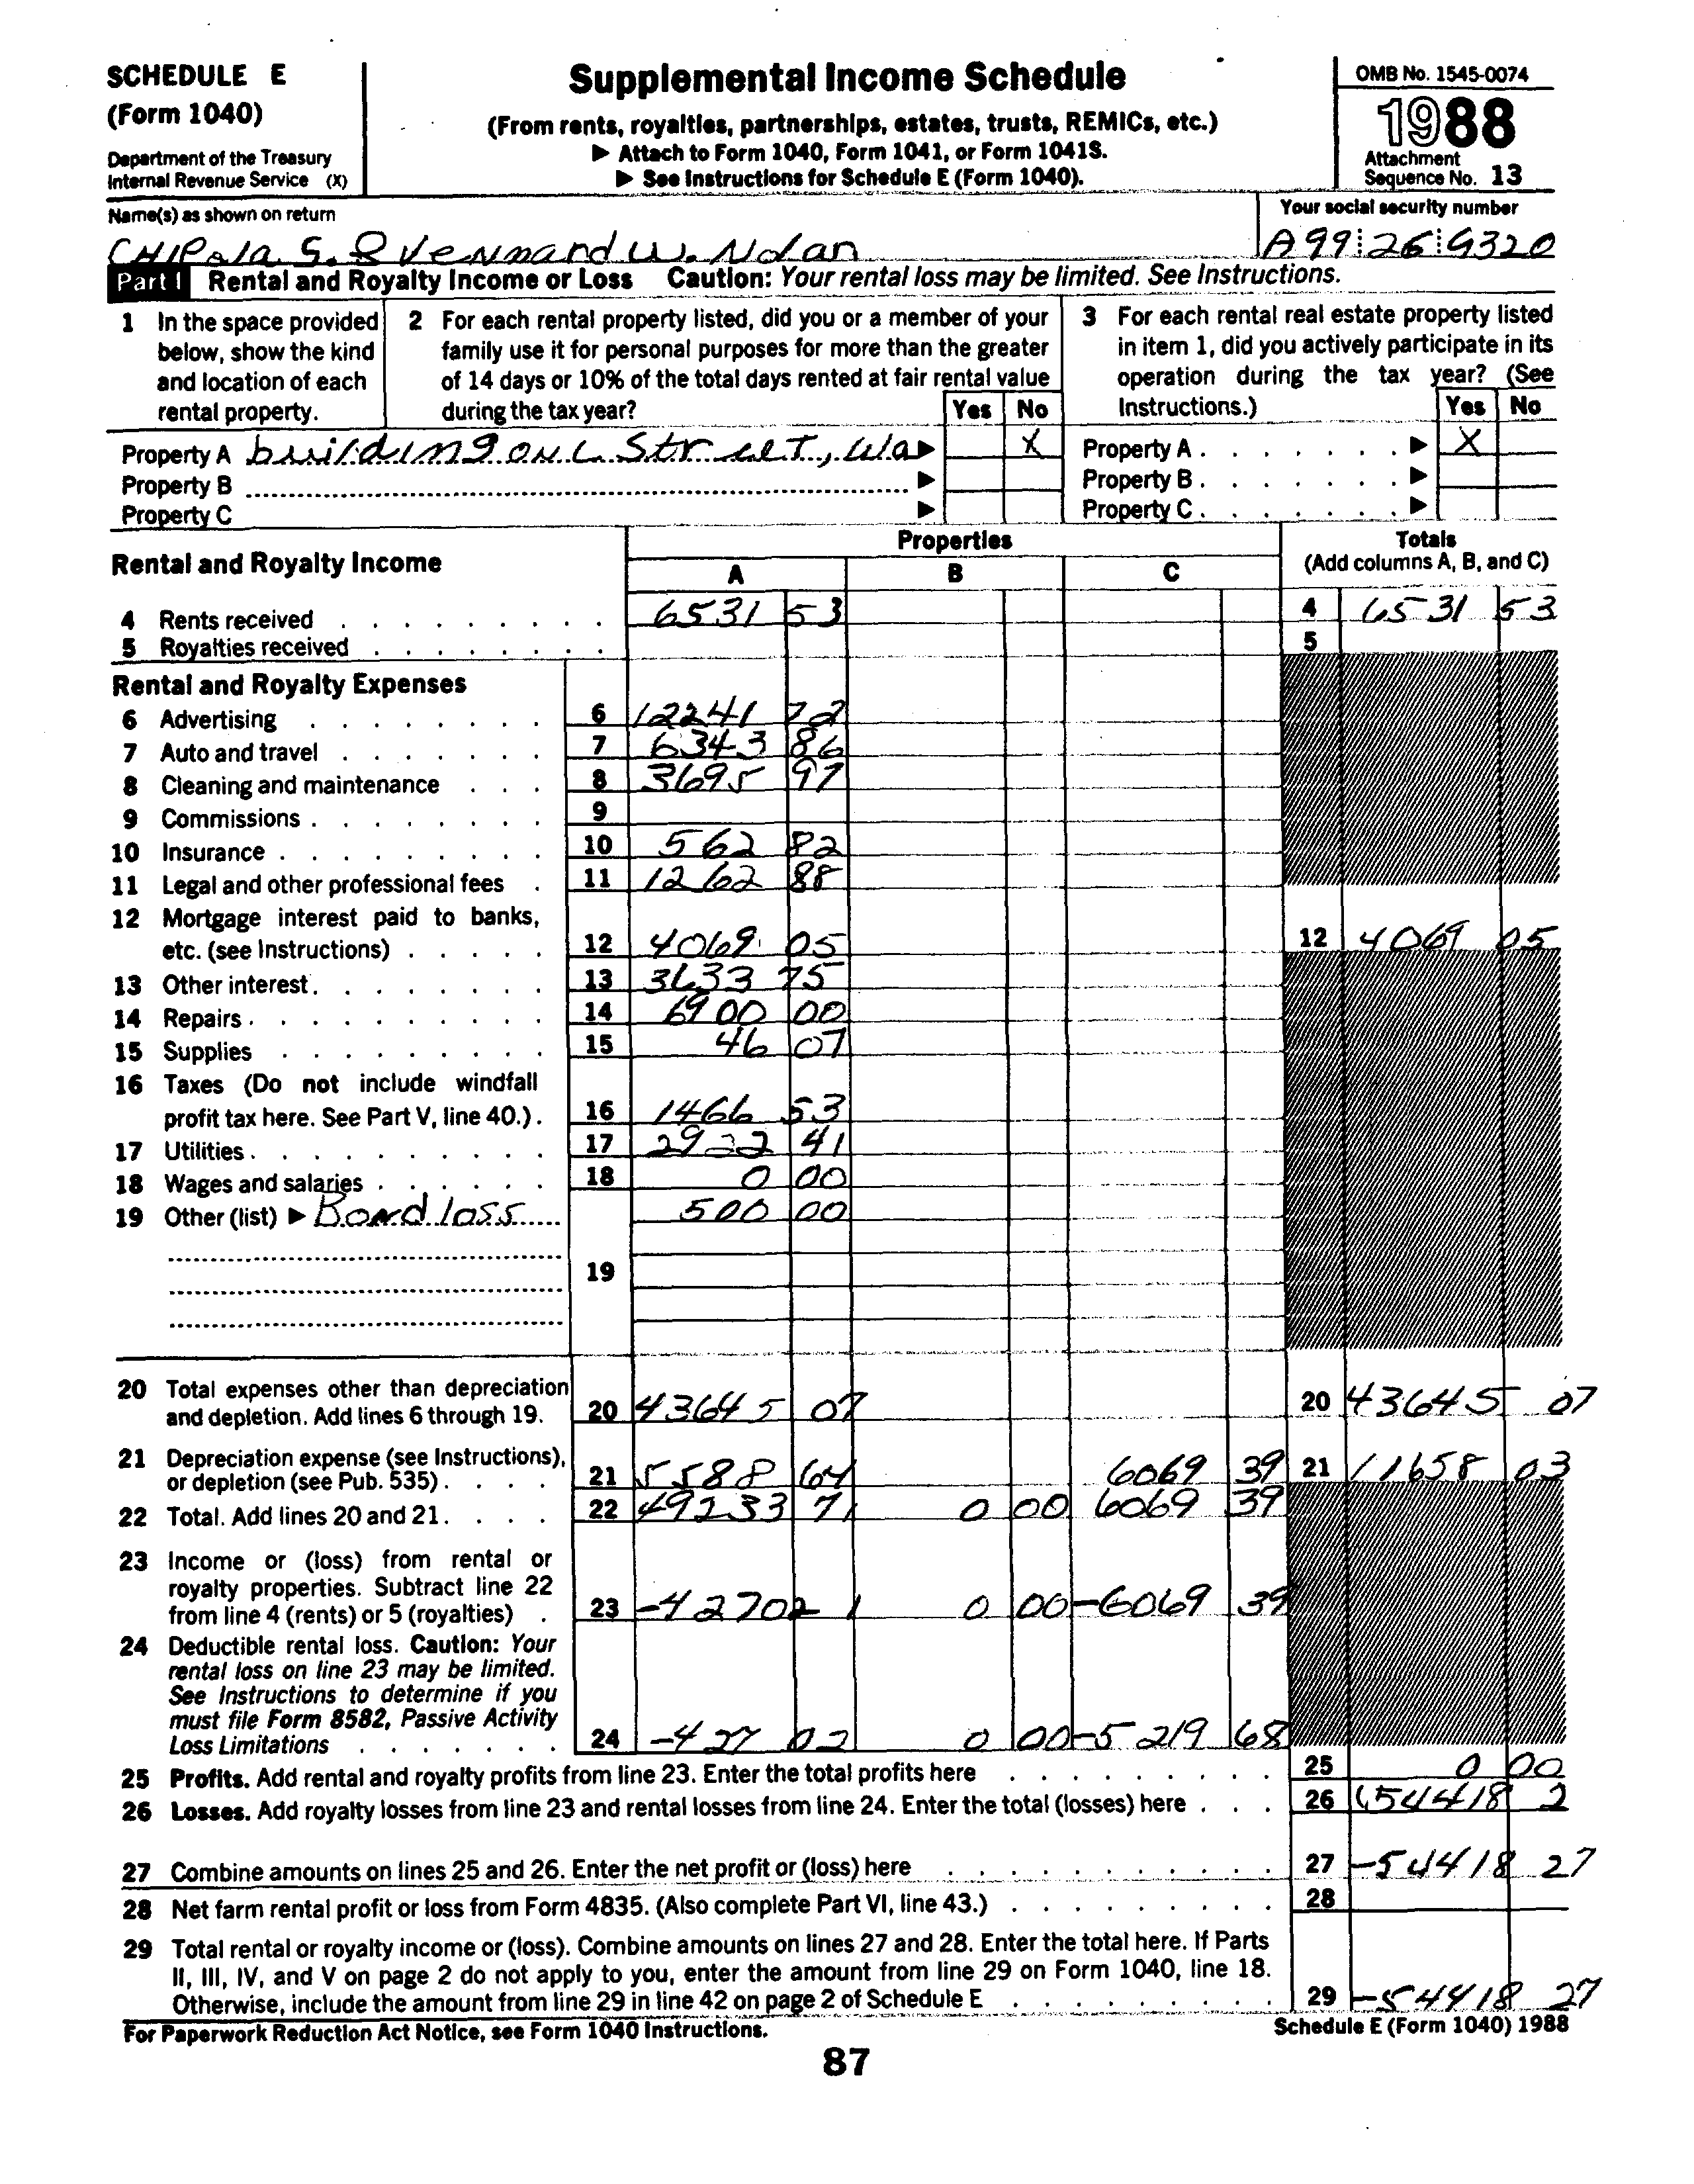 SCHEDULE E
(Form 1040)
Department of the Treasury
Internal Revenue Service (X)
Supplemental Income Schedule
(From rents, royalties, partnerships, estates, trusts, REMICs, etc.)
▶ Attach to Form 1040, Form 1041, or Form 1041S.
▶ See Instructions for Schedule E (Form 1040).
OMB No. 1545-0074
1988
Attachment
Sequence No. 13
Name(s) as shown on return
Your social security number
S. & Vennard W. Nolan
A99 26 9320
Part I Rental and Royalty Income or Loss Caution: Your rental loss may be limited. See Instructions.
1 In the space provided
below, show the kind
and location of each
rental property.
2 For each rental property listed, did you or a member of your
family use it for personal purposes for more than the greater
of 14 days or 10% of the total days rented at fair rental value
during the tax year? Yes No
3 For each rental real estate property listed
in item 1, did you actively participate in its
operation during the tax year? (See
Instructions.) Yes No
Property A building on L Street, Wa ▶ X
Property B ▶
Property C ▶
Property A . . . . . . . ▶ X
Property B . . . . . . . ▶
Property C . . . . . . . ▶
Rental and Royalty Income
Properties
A B C
Totals
(Add columns A, B, and C)
4 Rents received 6531 53 4 6531 53
5 Royalties received 5
Rental and Royalty Expenses
6 Advertising 6 12241 72
7 Auto and travel 7 6343 86
8 Cleaning and maintenance 8 3695 97
9 Commissions 9
10 Insurance 10 562 82
11 Legal and other professional fees 11 1262 88
12 Mortgage interest paid to banks,
etc. (see Instructions) 12 4069 05 12 4069 05
13 Other interest 13 3633 75
14 Repairs 14 6900 00
15 Supplies 15 46 07
16 Taxes (Do not include windfall
profit tax here. See Part V, line 40.) 16 1466 53
17 Utilities 17 2922 41
18 Wages and salaries 18 0 00
19 Other (list) ▶ Bond loss 500 00
19
20 Total expenses other than depreciation
and depletion. Add lines 6 through 19. 20 43645 07 20 43645 07
21 Depreciation expense (see Instructions),
or depletion (see Pub. 535) 21 5588 64 6069 39 21 11658 03
22 Total. Add lines 20 and 21. 22 49233 71 0 00 6069 39
23 Income or (loss) from rental or
royalty properties. Subtract line 22
from line 4 (rents) or 5 (royalties) 23 -42702 1 0 00 -6069 39
24 Deductible rental loss. Caution: Your
rental loss on line 23 may be limited.
See Instructions to determine if you
must file Form 8582, Passive Activity
Loss Limitations 24 -427 02 0 00 -5219 68
25 Profits. Add rental and royalty profits from line 23. Enter the total profits here 25 0 00
26 Losses. Add royalty losses from line 23 and rental losses from line 24. Enter the total (losses) here 26 (54418 2
27 Combine amounts on lines 25 and 26. Enter the net profit or (loss) here 27 -54418 27
28 Net farm rental profit or loss from Form 4835. (Also complete Part VI, line 43.) 28
29 Total rental or royalty income or (loss). Combine amounts on lines 27 and 28. Enter the total here. If Parts
II, III, IV, and V on page 2 do not apply to you, enter the amount from line 29 on Form 1040, line 18.
Otherwise, include the amount from line 29 in line 42 on page 2 of Schedule E 29 -54418 27
For Paperwork Reduction Act Notice, see Form 1040 Instructions.
Schedule E (Form 1040) 1988
87